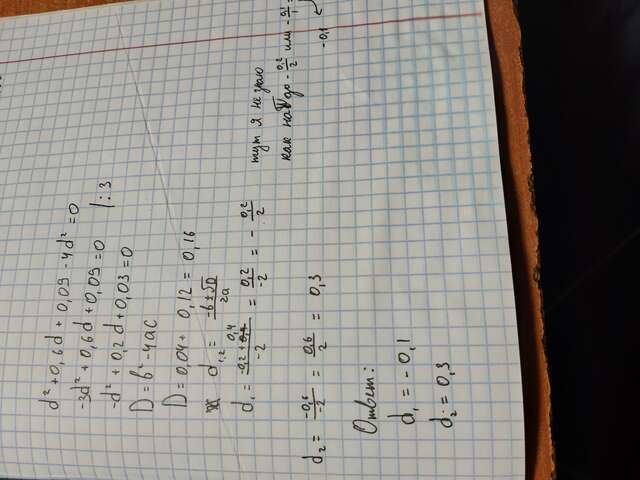 d² + 0,6d + 0,09 - 4d² = 0
-3d² + 0,6d + 0,09 = 0 | : 3
-d² + 0,2d + 0,03 = 0
D = b² - 4ac
D = 0,04 + 0,12 = 0,16
d₁,₂ = (-b ± √D)/2a
d₁ = (-0,2 + 0,4)/-2 = 0,2/-2 = - 0,2/2
тут я не знаю
как надо - 0,2/2 или - 0,1/1 =
-0,1
d₂ = -0,6/-2 = 0,6/2 = 0,3
Ответ:
d₁ = -0,1
d₂ = 0,3